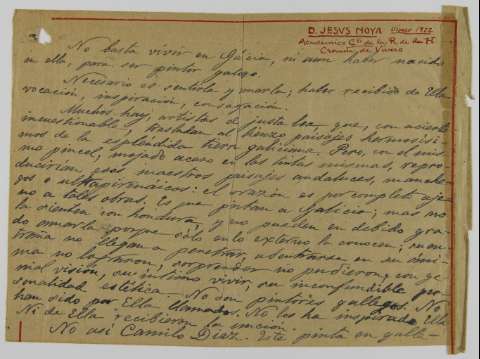 D. JESVS NOYA
Académico Cte de la R. de la H
Cronista de Vivero
No basta vivir en Galicia, ni aun haber nacido
en ella, para ser pintor gallego.
Necesario es sentirla y amarla; haber recibido de Ella
vocación, inspiración, consagración.
Muchos hay, artistas de justa loa, que, con acierto
incuestionable, trasladan al lienzo paisajes hermosísi-
mos de la espléndida tierra galiciana. Pero, con el mis-
mo pincel, mojado acaso en las tintas mismas, repro-
ducirían, esos maestros paisajes andaluces, manche-
gos o ultrapirenáicos: el corazón es por completo aje-
no a tales obras. Es que pintan a Galicia; mas no
la sienten con hondura, y no pueden en debido gra-
do amarla porque sólo en lo externo la conocen; su en-
traña no llegan a penetrar, adentrarse en su áni-
ma no lograron, sorprender no pudieron, con ge-
nial visión, su íntimo vivir, su inconfundible per-
sonalidad estética. No son pintores gallegos. No
han sido por Ella llamados. No les ha inspirado Ella
Ni de Ella recibieron la unción.
No así Camilo Díaz. Este pinta en galle-